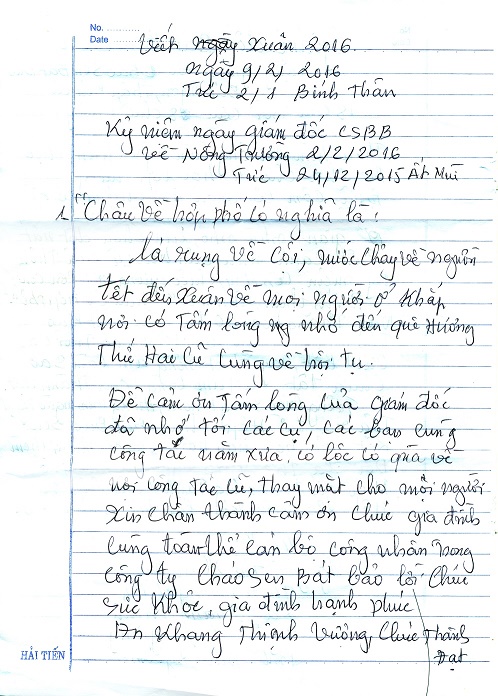 No.
Date
Viết ngày Xuân 2016.
ngày 9/2/2016
Tức 2/1 Bính Thân
Kỷ niệm ngày giám đốc CSBB
về Nông Trường 2/2/2016
Tức 24/12/2015 Ất Mùi
1. "Châu về hợp phố có nghĩa là:
lá rụng về cội, nước chảy về nguồn
tết đến xuân về mọi người ở khắp
nơi có Tấm lòng nhớ đến quê Hương
Thứ Hai Cũ Cùng về hội tụ.
Để cảm ơn Tấm lòng của giám đốc
đã nhớ tới các cụ, các bạn cùng
công tác năm xưa. có lộc có quà về
nơi công tác cũ, thay mặt cho mọi người
xin chân thành cảm ơn chúc gia đình
cùng toàn thể cán bộ công nhân trong
công ty cháo sen bát bảo lời chúc
sức khỏe, gia đình hạnh phúc
An Khang Thịnh Vượng, chúc Thành
đạt
HẢI TIẾN